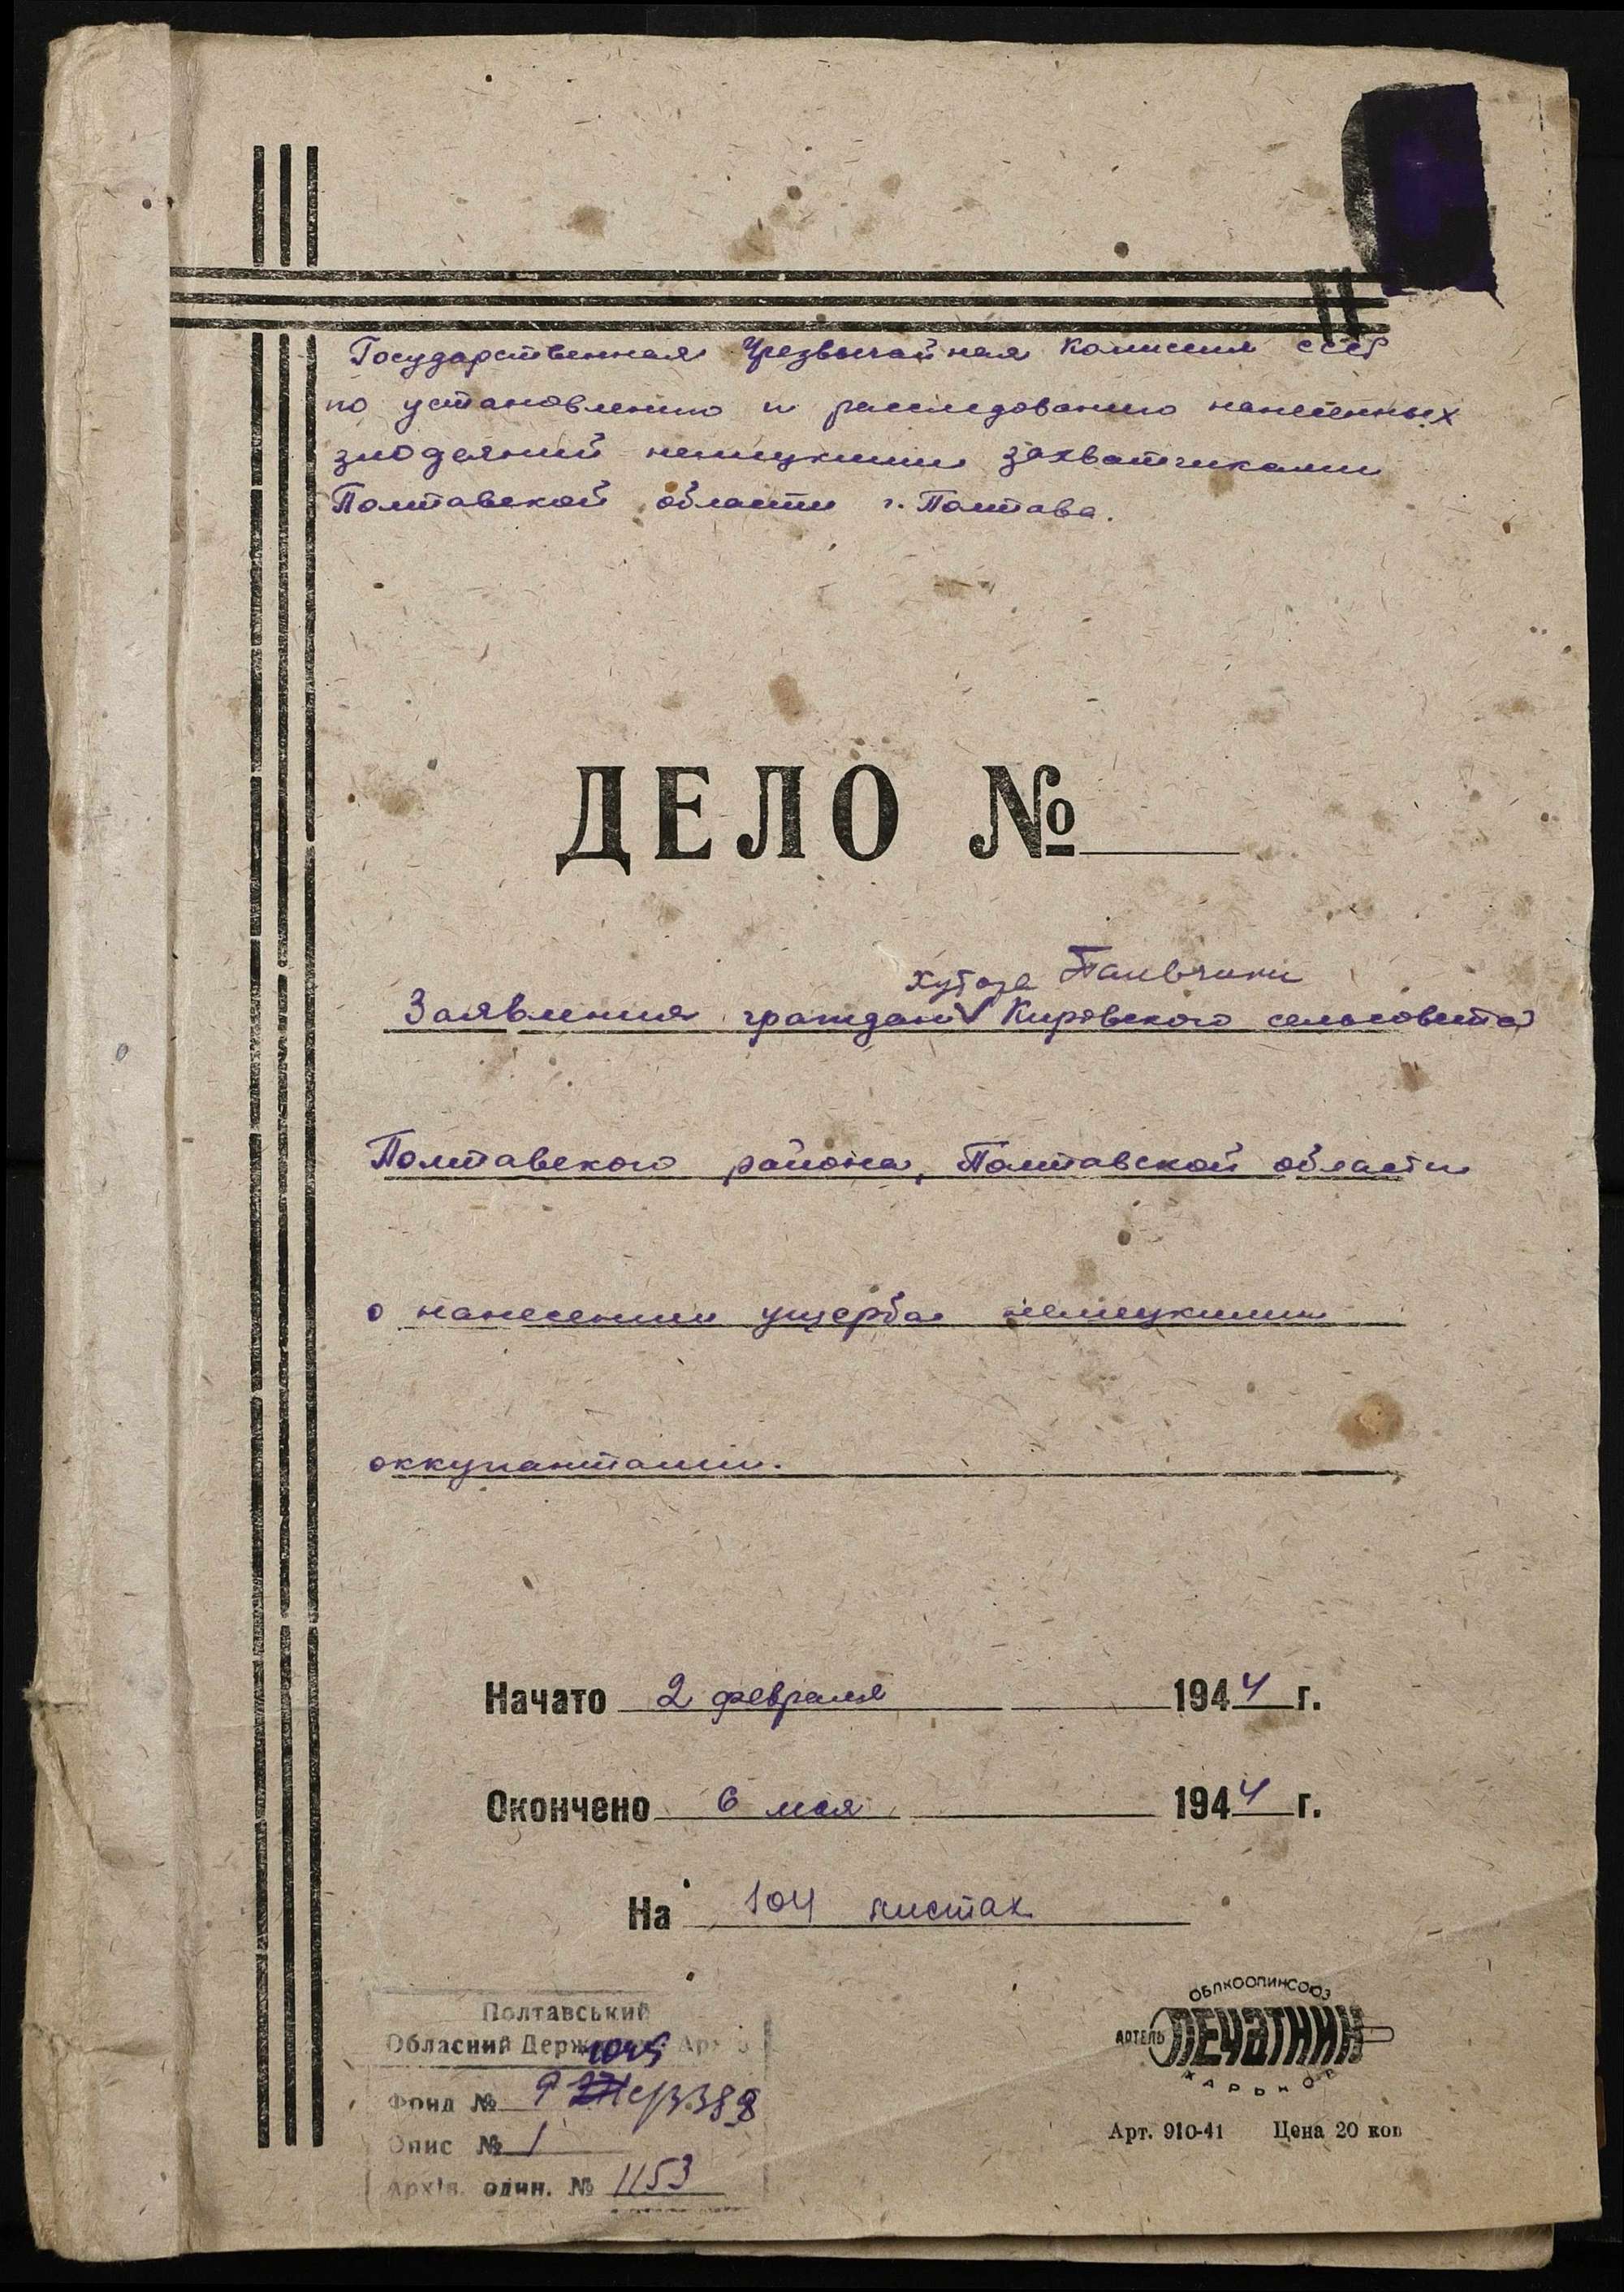 Государственная Чрезвычайная Комиссия СССР
по установлению и расследованию нанесенных
злодеяний немецкими захватчиками
Полтавской области г. Полтава.
ДЕЛО №
хутора
Заявления граждан V Кировского сельсовета
Полтавского района, Полтавской области
о нанесении ущерба немецкими
оккупантами.
Начато 2 февраля 1944 г.
Окончено 6 мая 1944 г.
На 104 листах
Полтавський
Обласний
Фонд № Р 3388
Опис № 1
Архів. один. № 1153
ОБЛКООПИНСОЮЗ
АРТЕЛЬ ПЕЧАТНИК
ХАРЬКОВ
Арт. 910-41 Цена 20 коп